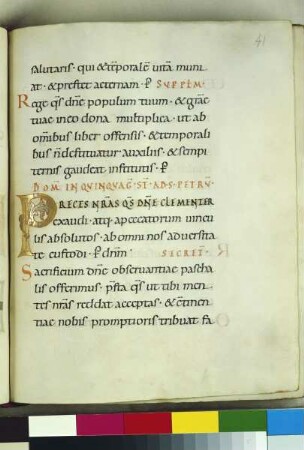 41
salutaris · qui & temporalē uitā muni
at · & prestet aeternam · P SUP POPLM ·
Rege qs dne populum tuum · & gratiae
tuae in eo dona multiplica · ut ab
omnibus liber offensis · & temporali
bus n destituatur auxiliis · & sempi
ternis gaudeat institutis · P
DOM IN QUINQUAG ST AD S PETRŪ ·
PRECES NRAS QS DNE CLEMENTER
exaudi · atq· a peccatorum uincu
lis absolutos · ab omni nos aduersita
te custodi · P dnm · SECRET ·
Sacrificium dne obseruantiae pascha
lis offerimus · psta qs ut tibi men
tes nras reddat acceptas · & ctinen
tiae nobis promptioris tribuat fa